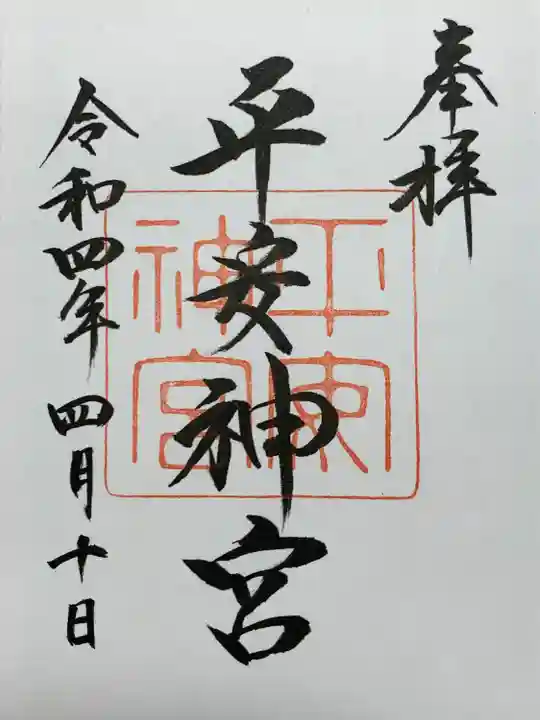 奉拝
平安神宮
令和四年 四月十日
平安神宮